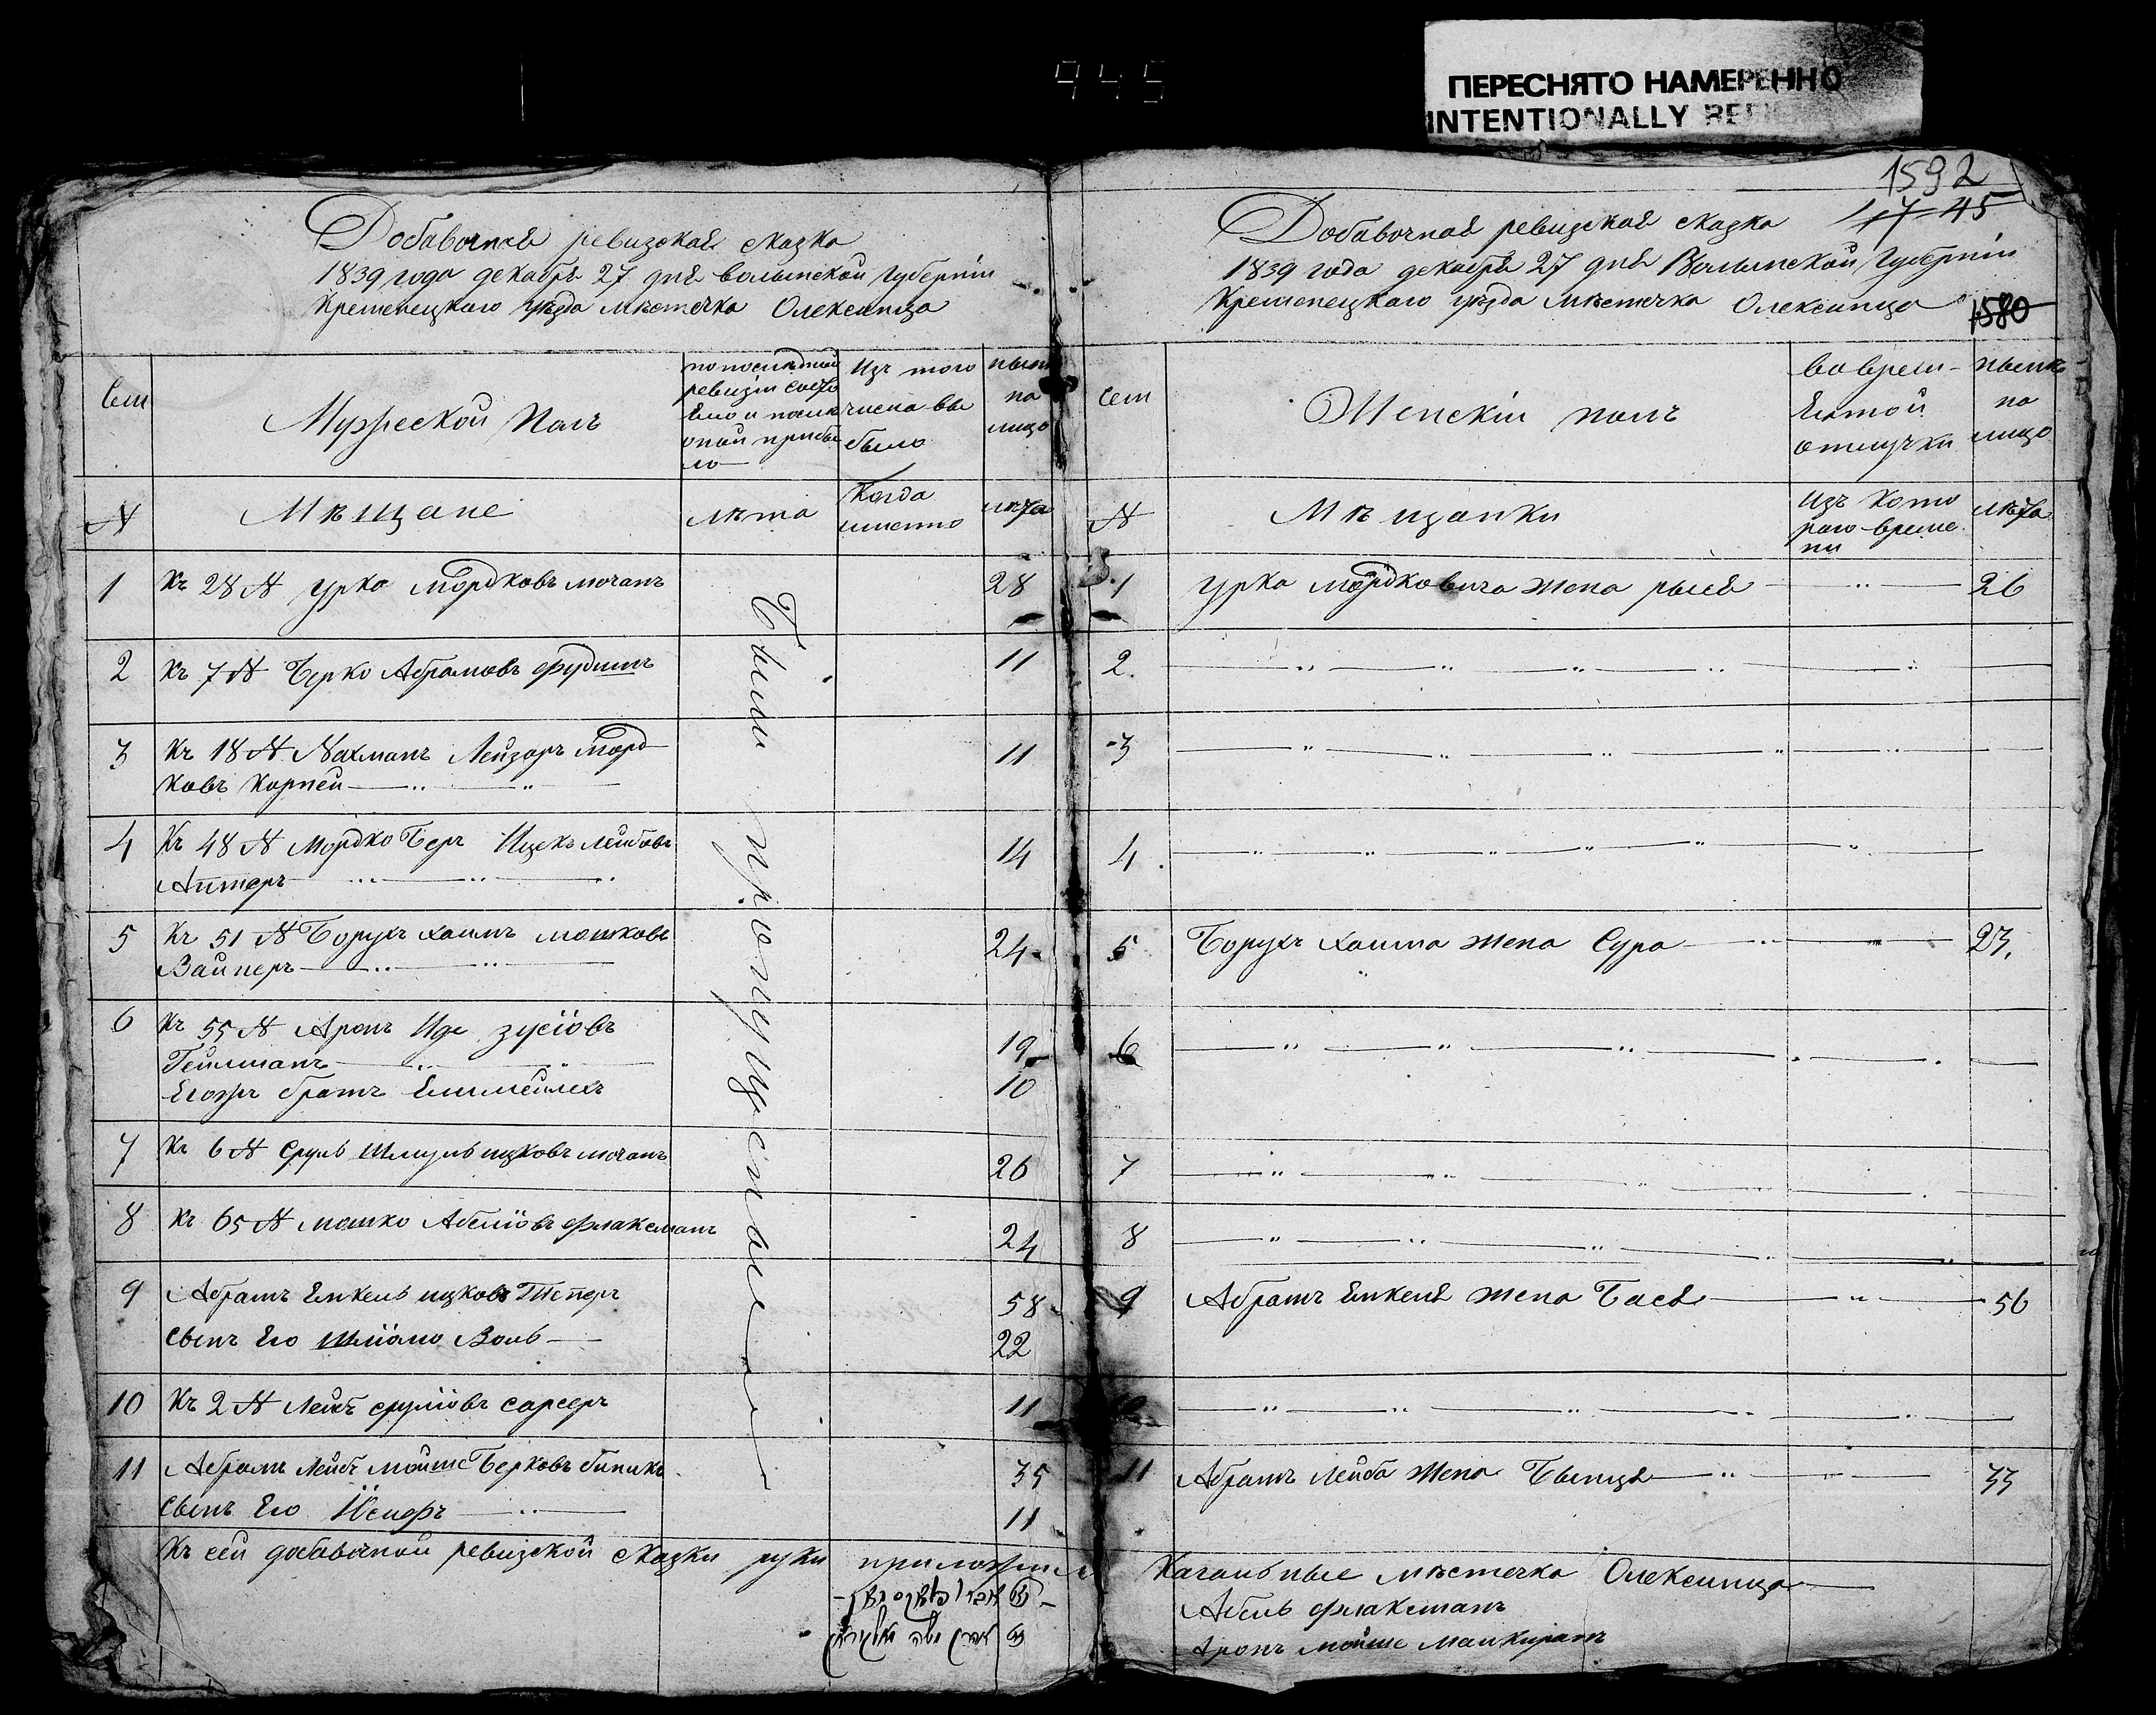 945
ПЕРЕСНЯТО НАМЕРЕННО
INTENTIONALLY
Добавочная ревизская сказка
1839 года декабрь 27 дня волынской губернии
Кременецкого уѣзда мѣстечка Олексинца
Сем
Мужеской Полъ
по послѣдной
ревизіи состо
яло и после
оной прибы
ло
Изъ того
числа вы
было
нынѣ
на
лицо
N
Мѣщане
лѣта
Когда
именно
лѣта
1 Къ 28 N Урко Мордковъ мочанъ 28
2 Къ 7 N Берко Абрамовъ Фудимъ 11
3 Къ 18 N Нахманъ Лейзоръ Морд
ковъ Корней 11
4 Къ 48 N Мордко Беръ Ицекъ Лейбовъ
Аптеръ 14
5 Къ 51 N Борухъ Хаимъ мошковъ
Вайнеръ 24
6 Къ 55 N Аронъ Иде зусіовъ 19
Гейлманъ
Егожъ братъ Елимейлехъ 10
7 Къ 6 N Сруль Шмуль ицковъ мочанъ 26
8 Къ 65 N мошко Абеліовъ Флаксманъ 24
9 Абрамъ Енкель ицковъ Теперъ 58
Сынъ Его Шліома Воль 22
10 Къ 2 N Лейбъ сруліовъ сарсеръ 11
11 Абрамъ Лейбъ мойше Берковъ биникъ 35
Сынъ Его Іосифъ 11
Были пропущенные
Къ сей добавочной ревизской сказки руки приложили
1592
17 45
Добавочная ревизская сказка
1839 года декабря 27 дня Волынской Губерніи
Кременецкаго уѣзда мѣстечка Олексинца
1580
Сем
Женскій полъ
во врем-
Енной
отлучки
нынѣ
на
лицо
N
Мѣщанки
Изъ кото
раго време
ни
лѣта
1 Урка Мордковича жена рыся 26
2
3
4
5 Борухъ Хаима жена Сура 23
6
7
8
9 Абрамъ Енкеля жена Бася 56
11 Абрамъ Лейба жена Бынця 33
Кагальные мѣстечка Олексинца
Абель Флаксманъ
Аронъ мойше Манкиранъ